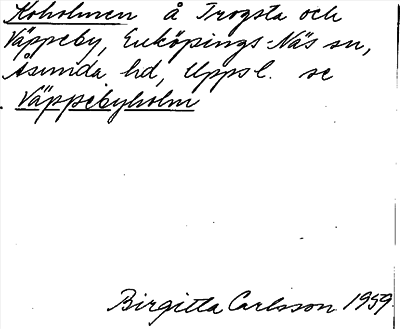 Koholmen å Trogsta och
Väppeby, Enköpings-Näs sn,
Åsunda hd, Upps l. se
Väppebyholm
Birgitta Carlsson 1959.